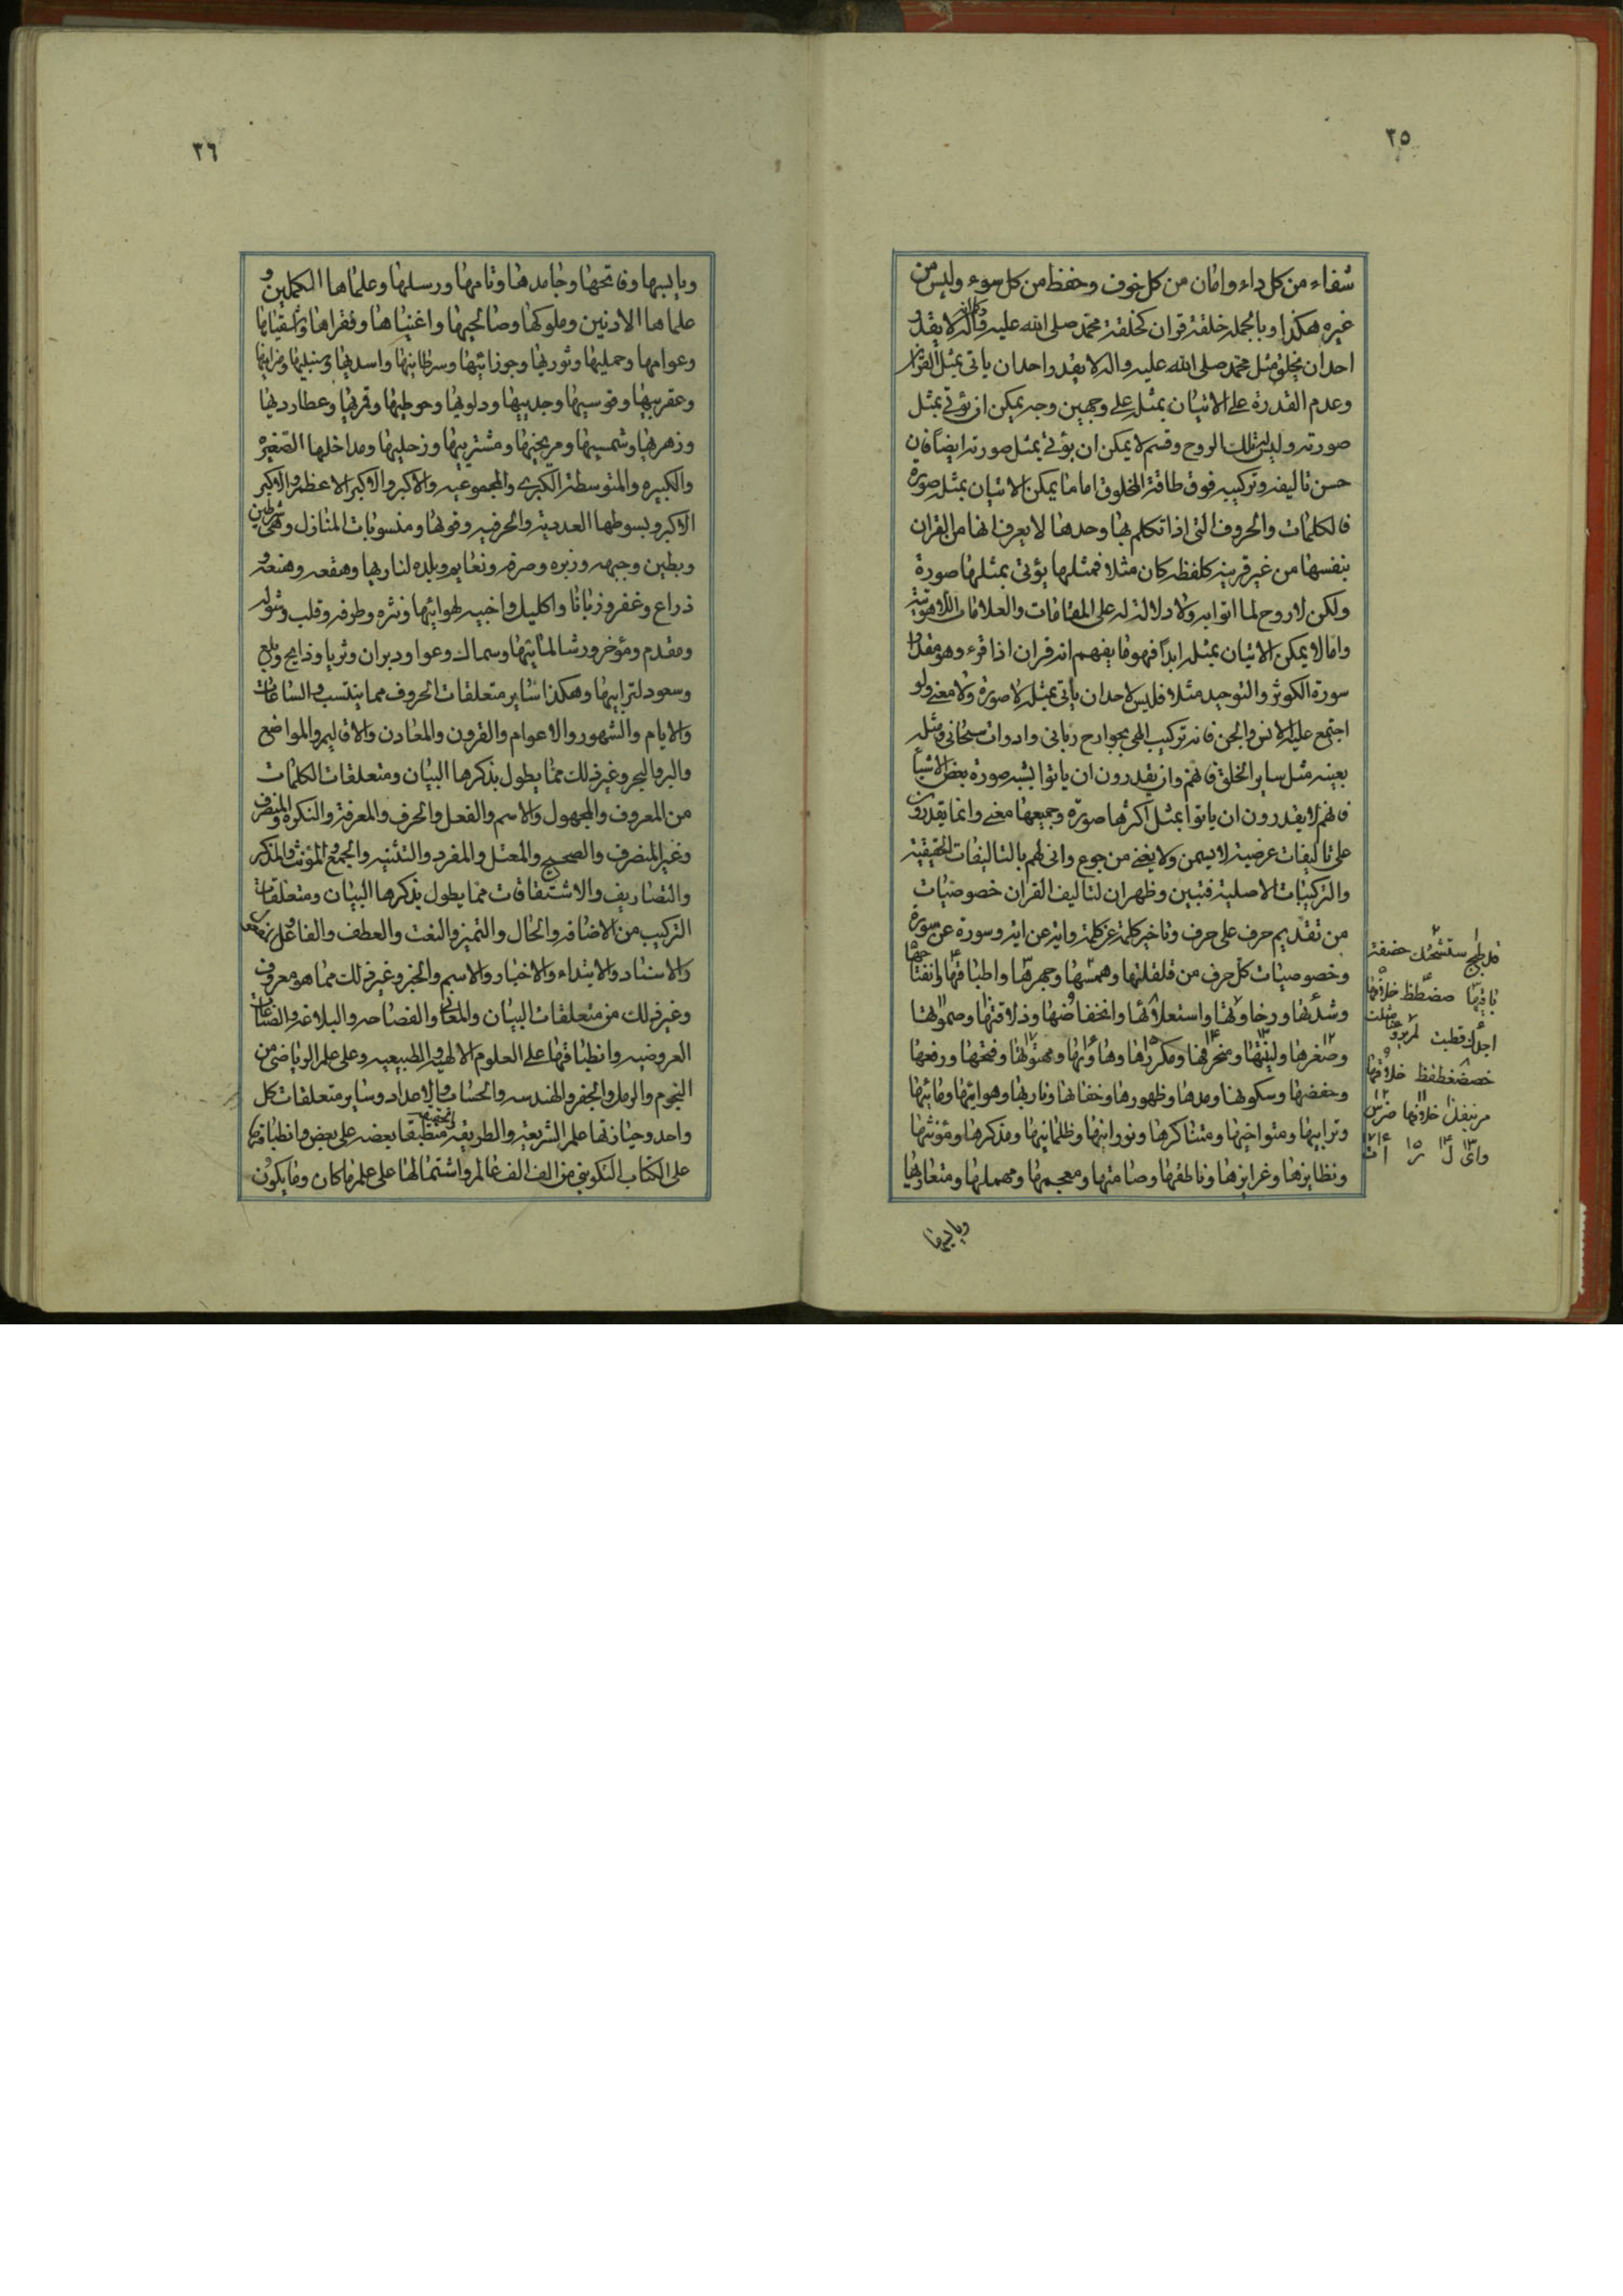 ٢٥
شفاء من كل داء وامان من كل خوف وحفظ من كل سوء وليس من
غيره هكذا وبالجمله خلقة قران كخلقة محمد صلى الله عليه واله لا يقدر
احد ان يخلق مثل محمد صلى الله عليه واله لا يقدر احد ان ياتى بمثل القران
وعدم القدرة على الاتيان بمثله على وجهين وجه يمكن ان يؤتى بمثل
صورته وليس لتلك الروح وقسم لا يمكن ان يؤتى بمثل صورته ايضاً فان
حسن تاليفه وتركيبه فوق طاقة المخلوق اما ما يمكن الاتيان بمثل صورة
فالكلمات والحروف التى اذا تكلم بها وحدها لا يعرف انها من القران
بنفسها من غير قرينه كلفظه كان مثلا فمثلها يؤتى بمثلها صورة
ولكن لا روح لما اتوا به ولا دلالة له على المقامات والعلامات اللاهوتية
واما لا يمكن الاتيان بمثله ابداً فهو ما يفهم انه قران اذا قرء وهو مقدار
سورة الكوثر والتوحيد مثلا فليس لاحد ان ياتى بمثله لا صورة ولا معنى ولو
اجتمع عليه الانس والجن فانه تركيب الهى بجوارح ربانى وادوات سبحانى ومثله
بعينه مثل ساير الخلق فانهم وان يقدرون ان ياتوا بشبه صورة بعض الاشيا
فانهم لا يقدرون ان ياتوا بمثل اكثرها صورة وجميعها معنى وانما يقدرون
على تاليفات عرضية لا يسمن ولا يغنى من جوع وانى لهم بالتاليفات الحقيقية
والتركيبات الاصلية فتبين وظهر ان لتاليف القران خصوصيات
من تقديم حرف على حرف وتاخير كلمة عن كلمة واية عن اية وسورة عن سورة
وخصوصيات كل حرف من قلقلتها وهمسها وجهرها واطباقها وانفتاحها
وشدتها ورخاوتها واستعلائها وانخفاضها وذلاقتها وصموتها
وصغرها ولينتها ومنحرفها ومكررها وهاوئها ومهتوتها وفتحها ورفعها
وخفضها وسكونها ومدها وظهورها وخفائها وناريها وهوائيها ومائيها
وترابيها ومتواخيها ومتناكرها ونورانيها وظلمانيها ومذكرها ومؤنثها
ونظايرها وغرايزها وناطقها وصامتها ومعجمها ومهملها ومتعاونها
وبابيها
قد طبج ستشحثك خصفة
باقيها صضطظ خلافها
اجدك قطبت لم يروعنا مثلت
خصضغطقظ خلافها
مر بنفل خلافها صزس
واى ل ر ا ت
٢٦
وبابيها وفاتحها وجامدها وتامها ورسلها وعلماها الكملين و
علماها الادنين وملوكها وصالحيها واغنياها وفقراها واشقياها
وعوامها وحمليها وثوريها وجوزائيها وسرطانيها واسديها وسنبليها وميزانيها
وعقربيها وقوسيها وجدييها ودلويها وحوطيها وقمريها وعطارديها
وزهريها وشمسيها ومريخيها ومشتريها وزحليها ومداخلها الصغير
والكبيره والمتوسطة الكبرى والمجموعيه والاكبر والاكبر الاعظم والاكبر
الاكبر وبسوطها العدديه والحرفيه وقوها ومنسوبات المنازل وهى شرطين
وبطين وجبهه وزبره وصرفه ونعايم وبلده لناريها وهقعه وهنعه و
ذراع وغفر وزبانا واكليل واخبيه لهوائيها ونثره وطرفه وقلب وشوله
ومقدم ومؤخر ورشا لمائيها وسماك وعوا ودبران وثريا وذابح وبلع
وسعود لترابيها وهكذا ساير متعلقات الحروف مما ينتسب والساعات
والايام والشهور والاعوام والقرون والمعادن والاقاليم والمواضع
والبر والبحر وغير ذلك مما يطول بذكرها البيان ومتعلقات الكلمات
من المعروف والمجهول والاسم والفعل والحرف والمعرفة والنكره والمنصرف
وغير المنصرف والصحيح والمعتل والمفرد والتثنيه والجمع والمؤنث والمذكر
والتصاريف والاشتقاقات مما يطول بذكرها البيان ومتعلقات
التركيب من الاضافه والحال والتميز والنعت والعطف والفاعل
والاسناد والابتداء والاخبار والاسم والخبر وغير ذلك مما هو معروف
وغير ذلك من متعلقات البيان والمعانى والفصاحه والبلاغه والصناعات
العروضيه وانطباقها على العلوم الالهيه والطبيعيه وعلى علم الرياضى من
النجوم والرمل والجفر والهندسه والحساب والاعداد وساير متعلقات كل
واحد وحيازتها علم الشريعة والطريقه والحقيقه منطبقا بعضه على بعض وانطباقها
على الكتاب التكوينى من الف الف عالم واشتمالها على علم ما كان وما يكون